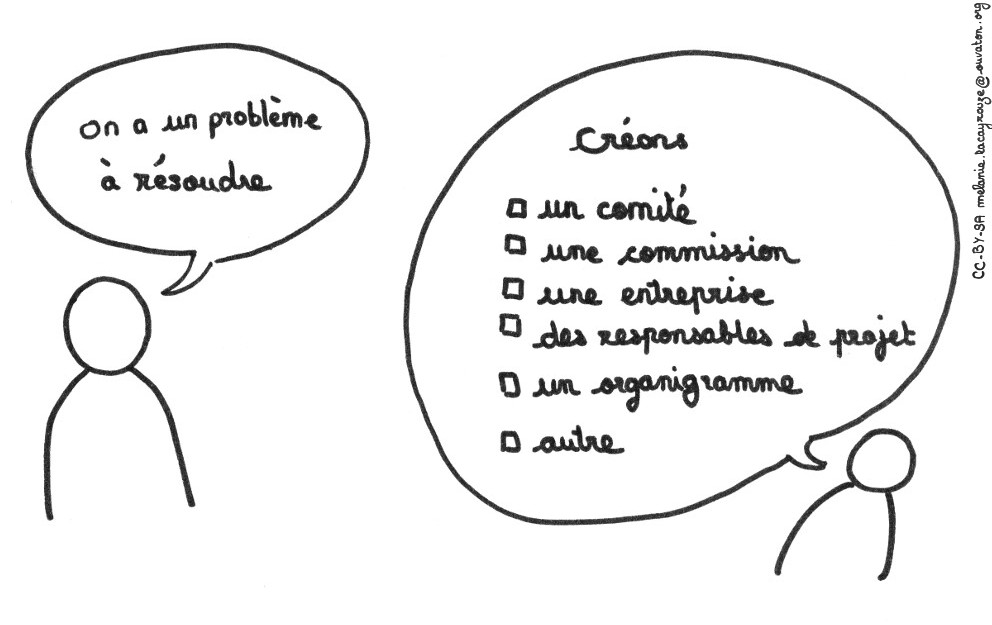 On a un problème
à résoudre
Créons
un comité
une commission
une entreprise
des responsables de projet
un organigramme
autre
CC-BY-SA melanie.lacayrouze@ouvaton.org